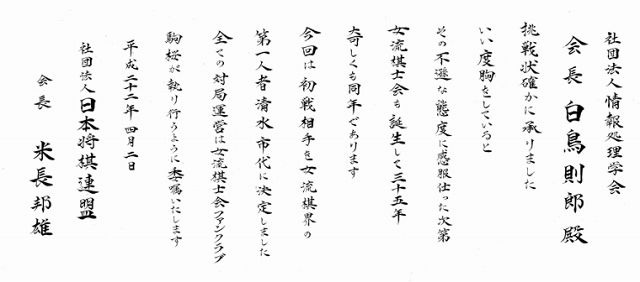 社団法人 情報処理学会
会長 白鳥則郎 殿
挑戦状確かに承りました
いい度胸をしていると
その不遜な態度に感服仕った次第
女流棋士会も誕生して三十五年
奇しくも同年であります
今回は初戦相手を女流棋界の
第一人者清水市代に決定しました
全ての対局運営は女流棋士会ファンクラブ
駒桜が執り行うように委嘱いたします
平成二十二年 四月二日
社団法人 日本将棋連盟
会長 米長邦雄